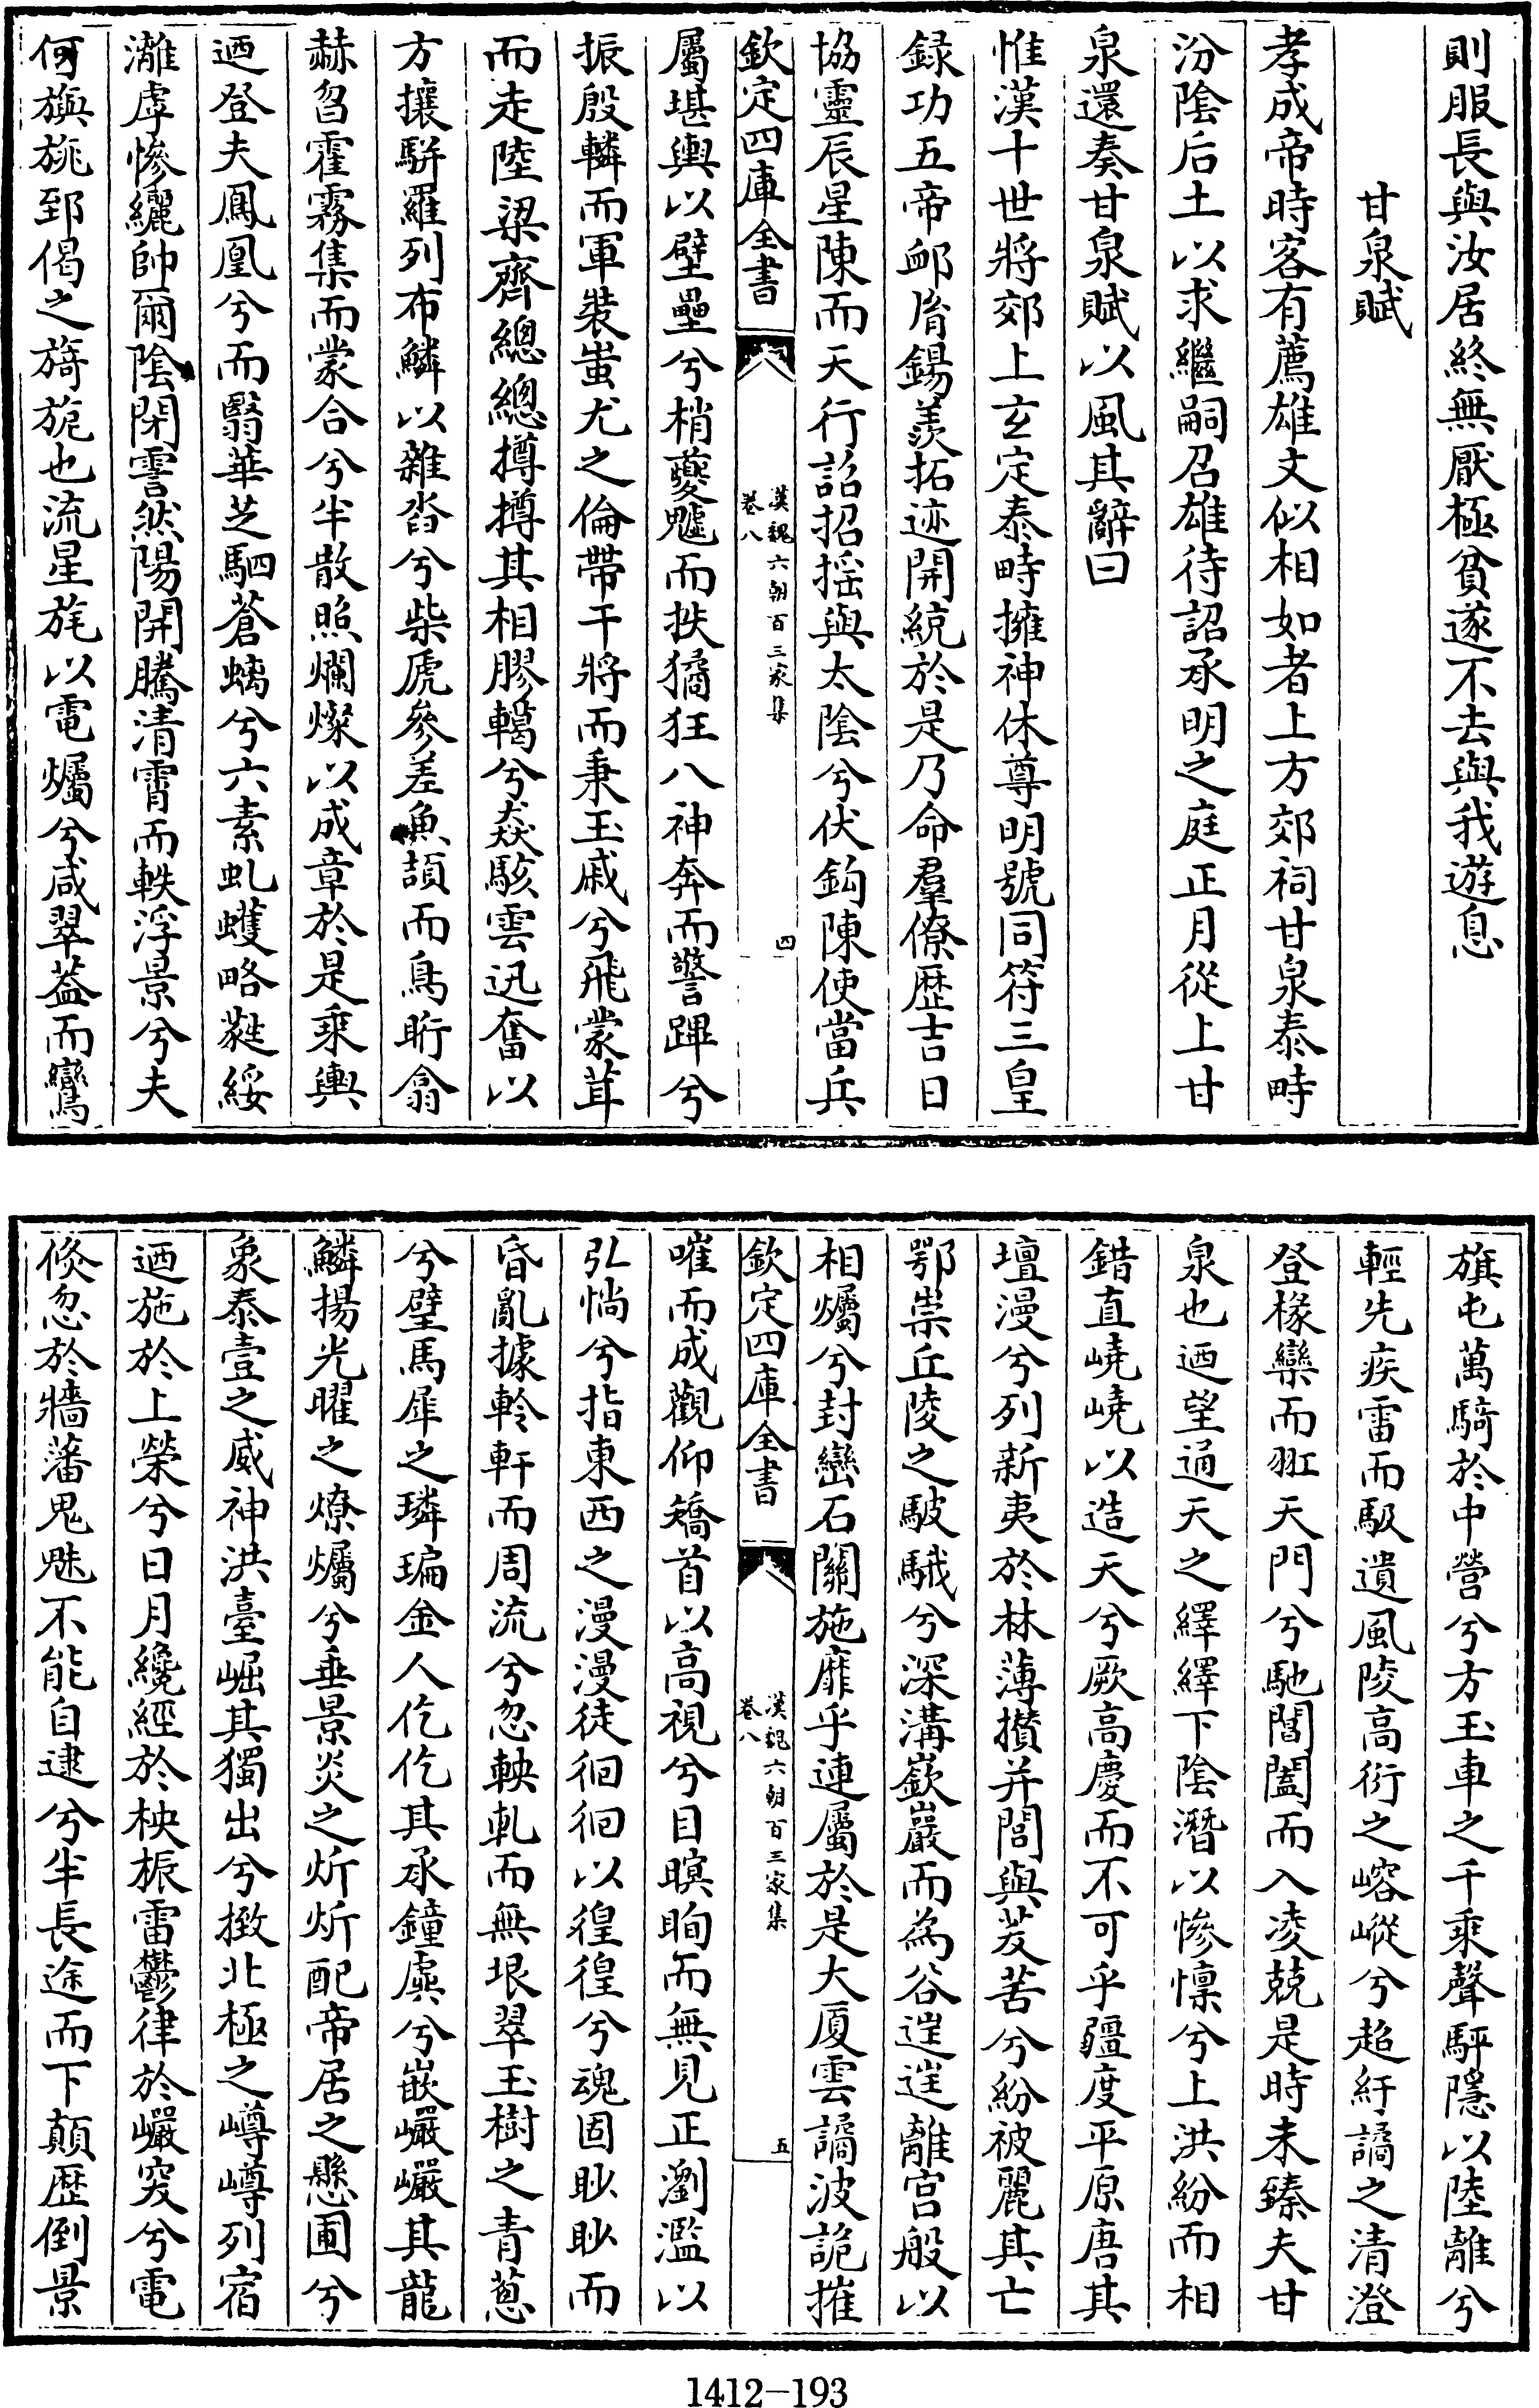 則服長與汝居終無厭極貧遂不去與我遊息
甘泉賦
孝成帝時客有薦雄文似相如者上方郊祠甘泉泰畤
汾隂后土以求繼嗣召雄待詔承明之庭正月從上甘
泉還奏甘泉賦以風其辭曰
惟漢十世將郊上玄定泰畤擁神休尊明號同符三皇
録功五帝䘏胤錫羨拓迹開統於是乃命羣僚歴吉日
協靈辰星陳而天行詔招揺與太隂兮伏鈎陳使當兵
欽定四庫全書
漢魏六朝百三家集
卷八
四
屬堪輿以壁壘兮梢夔魖而抶獝狂八神奔而警蹕兮
振殷轔而軍裝蚩尤之倫帶干將而秉玉戚兮飛蒙茸
而走陸梁齊總總撙撙其相膠轕兮猋駭雲迅奮以
方攘駢羅列布鱗以雜沓兮柴虒參差魚頡而鳥䀪翕
赫曶霍霧集而蒙合兮半散照爛燦以成章於是乘輿
迺登夫鳳凰兮而翳華芝駟蒼螭兮六素虬蠖略蕤綏
灕虖惨纚帥爾隂閉霅然陽開騰清霄而軼浮景兮夫
何旟旐郅偈之旖旎也流星旄以電爥兮咸翠葢而鸞
旗屯萬騎於中營兮方玉車之千乘聲駍隱以陸離兮
輕先疾雷而馺遺風陵高衍之嵱嵷兮超紆譎之清澄
登椽欒而羾天門兮馳閶闔而入凌兢是時未臻夫甘
泉也迺望通天之繹繹下隂潛以惨懍兮上洪紛而相
錯直嶢嶢以造天兮厥高慶而不可乎疆度平原唐其
壇漫兮列新荑於林薄攅并閭與茇苦兮紛被麗其亡
鄂崇丘陵之駊騀兮深溝嶔巖而為谷逞逞離宫般以
相爥兮封巒石關施靡乎連屬於是大厦雲譎波詭摧
欽定四庫全書
漢魏六朝百三家集
卷八
五
嗺而成觀仰矯首以高視兮目瞑眴而無見正瀏濫以
弘惝兮指東西之漫漫徒徊徊以徨徨兮魂固眇眇而
昏亂據軨軒而周流兮忽軮軋而無垠翠玉樹之青葱
兮璧馬犀之璘㻞金人仡仡其承鐘虡兮嵌巖巖其龍
鱗揚光曜之燎爥兮垂景炎之炘炘配帝居之懸圃兮
象泰壹之威神洪臺崛其獨出兮㨖北極之嶟嶟列宿
迺施於上榮兮日月纔經於柍桭雷鬱律於巖突兮電
倏忽於牆藩鬼魅不能自逮兮半長途而下顛歴倒景
1412—193